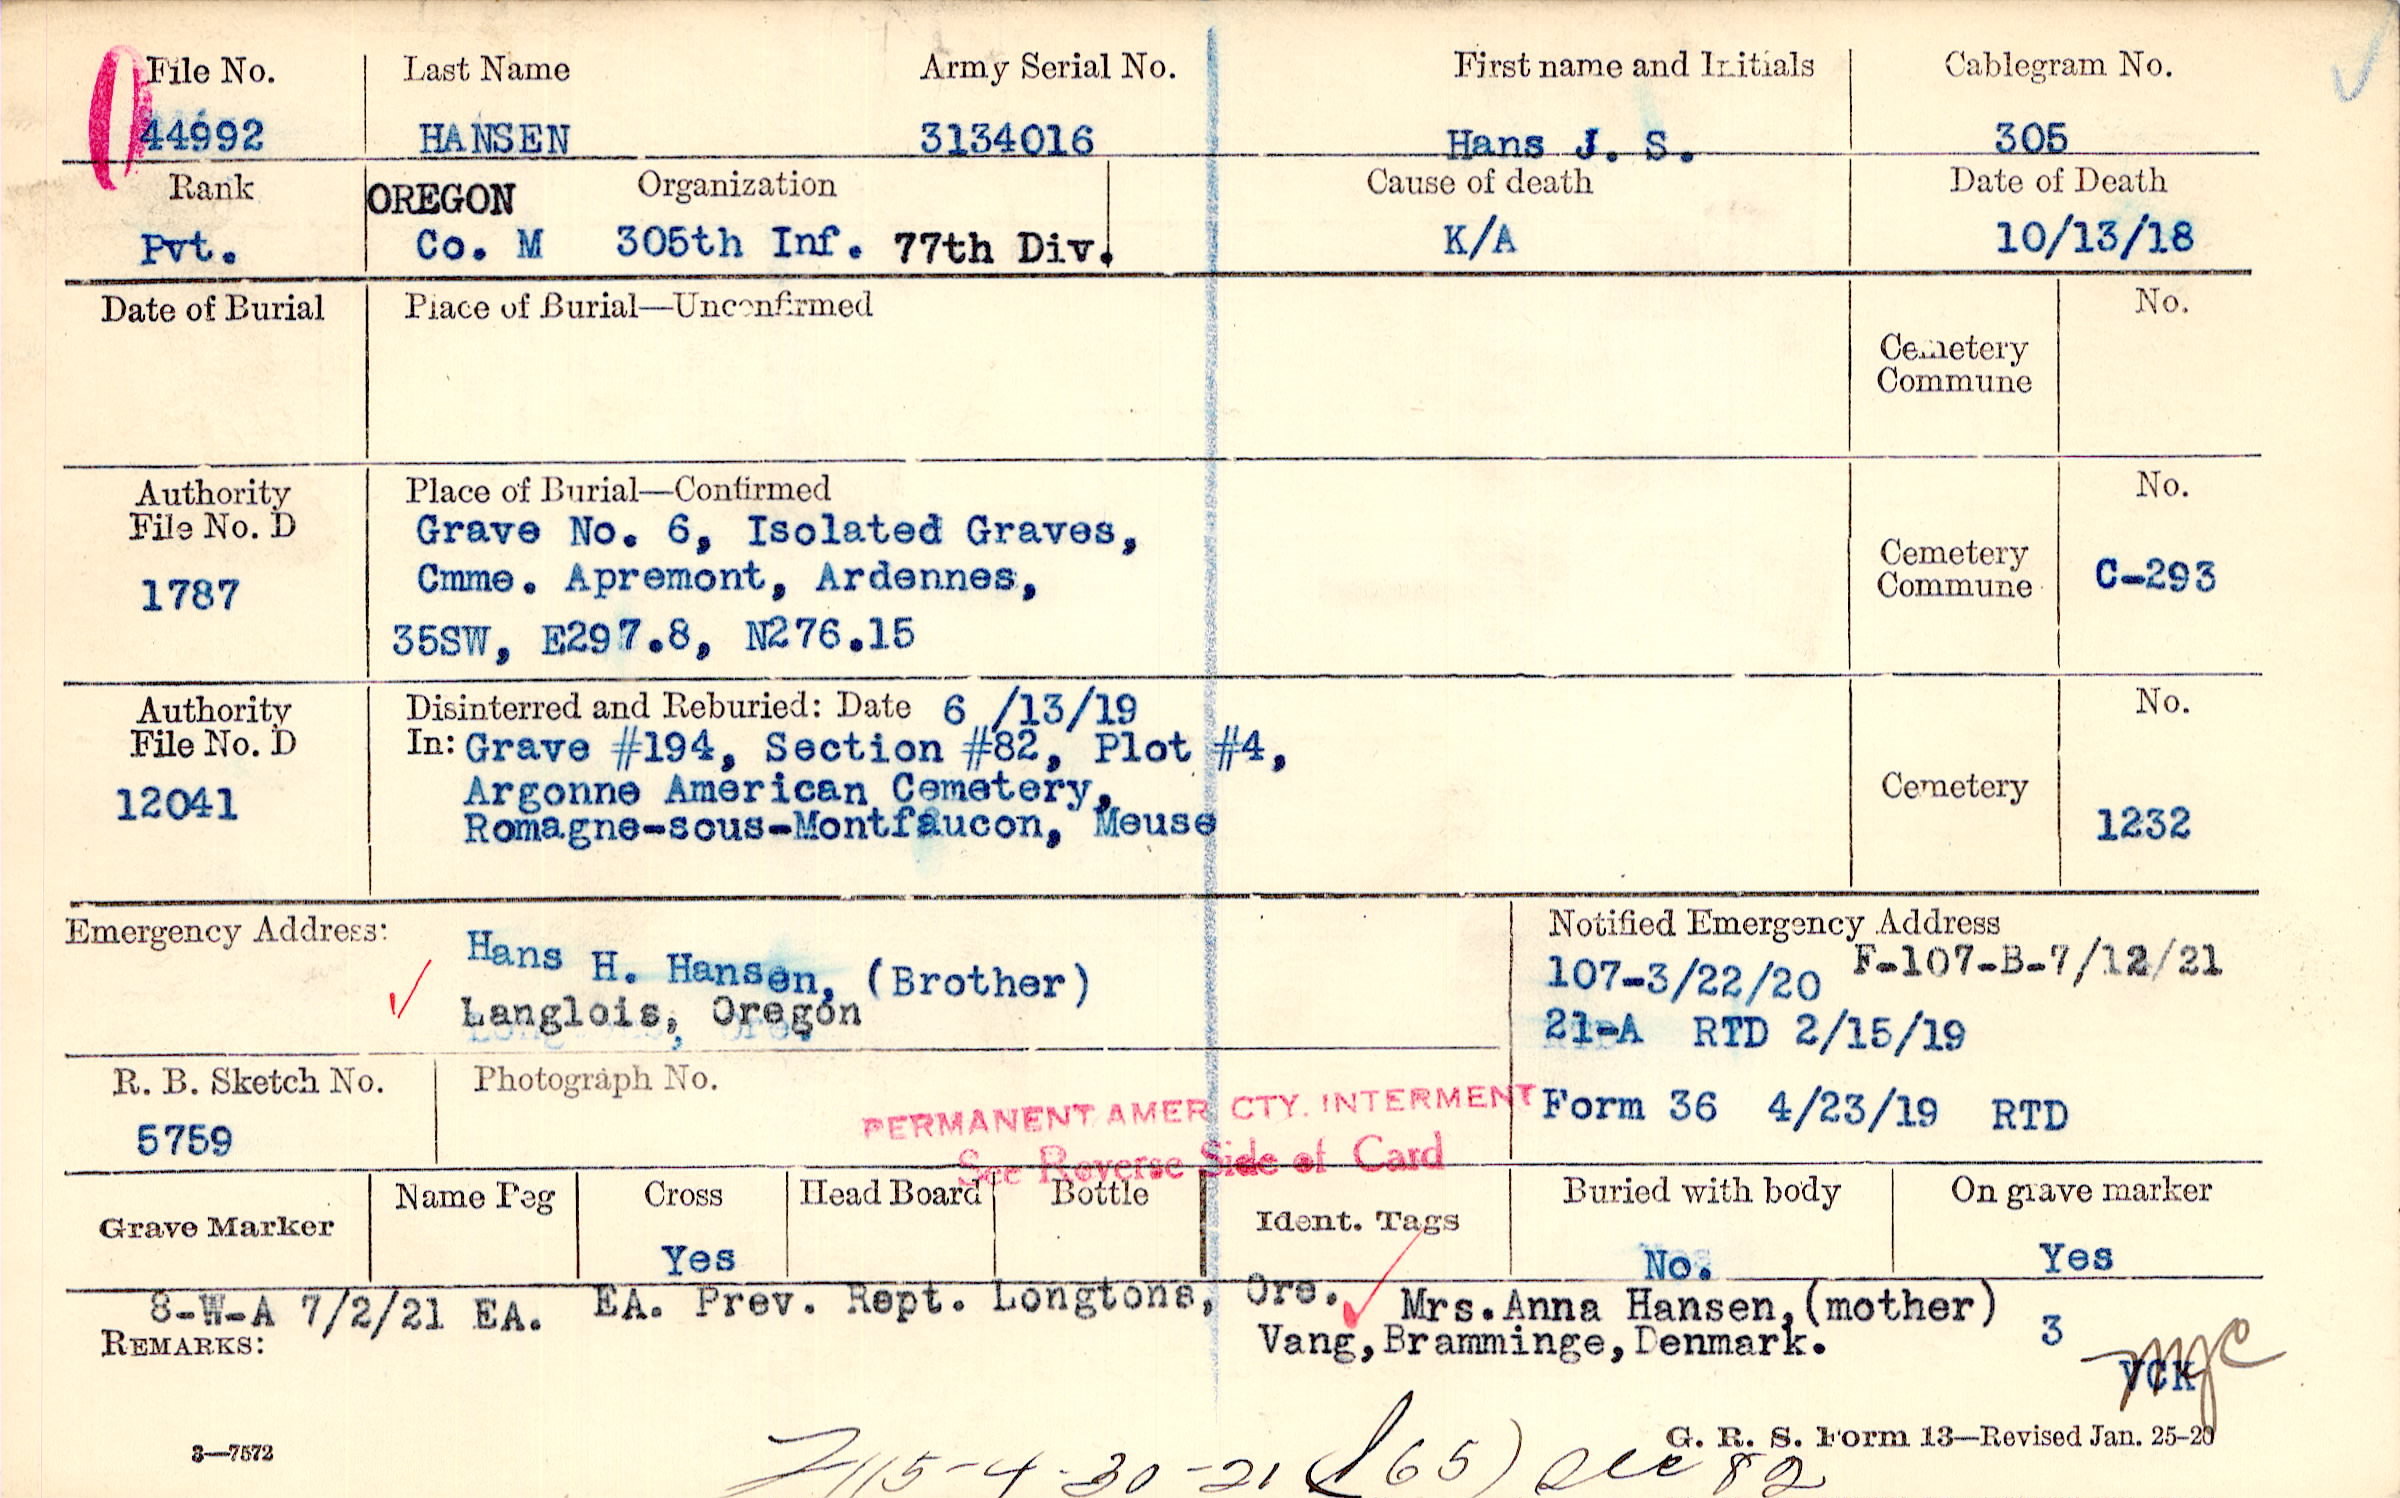 File No. Last Name Army Serial No. First name and Initials Cablegram No.
44992 HANSEN 3134016 Hans J. S. 305
Rank OREGON Organization Cause of death Date of Death
Pvt. Co. M 305th Inf. 77th Div. K/A 10/13/18
Date of Burial Place of Burial—Unconfirmed No.
Cemetery
Commune
Authority Place of Burial—Confirmed No.
File No. D Grave No. 6, Isolated Graves,
1787 Cmme. Apremont, Ardennes, Cemetery
Commune C-293
35SW, E297.8, N276.15
Authority Disinterred and Reburied: Date 6 /13/19 No.
File No. D In: Grave #194, Section #82, Plot #4,
12041 Argonne American Cemetery, Cemetery
Romagne-sous-Montfaucon, Meuse 1232
Emergency Address: Notified Emergency Address
Hans H. Hansen, (Brother) 107-3/22/20 F-107-B-7/12/21
Langlois, Oregon 21-A RTD 2/15/19
R. B. Sketch No. Photograph No.
5759 Form 36 4/23/19 RTD
PERMANENT AMER CTY. INTERMENT
See Reverse Side of Card
Grave Marker Name Peg Cross Head Board Bottle Ident. Tags Buried with body On grave marker
Yes No. Yes
8-W-A 7/2/21 EA. EA. Prev. Rept. Longtons, Ore. Mrs.Anna Hansen,(mother) 3
REMARKS: Vang,Bramminge,Denmark.
VCK
3—7572 G. R. S. Form 13—Revised Jan. 25-20
115-4-30-21 (65) Dec 82